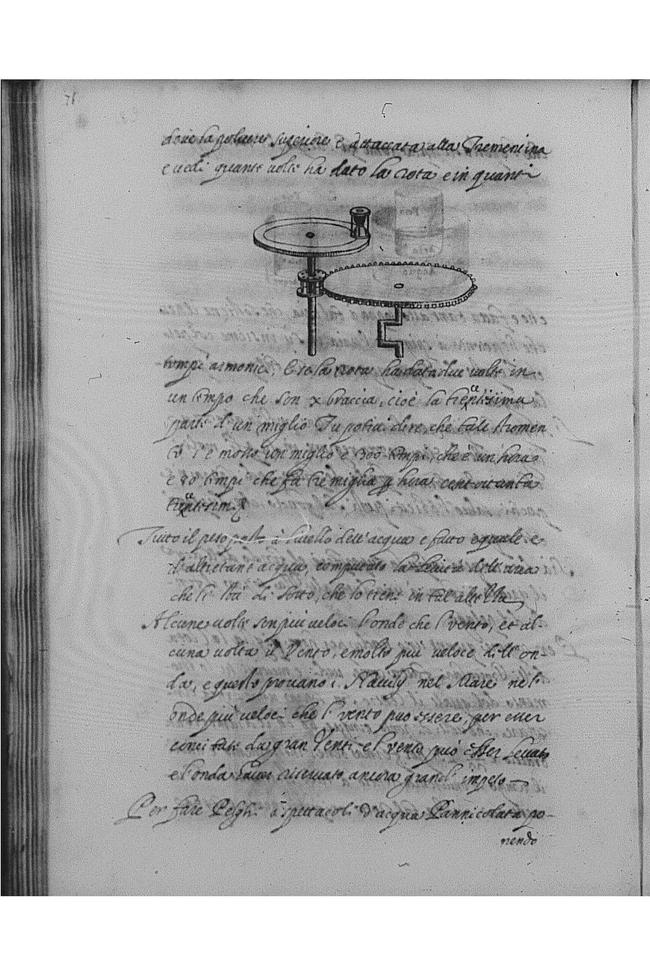 76
dove la polvere superiore è attaccata alla Trementina
e vedi quante volte ha dato la rota e in quanti
tempi armonici. Era la rota ha data due volte in
un tempo che son x braccia, cioè la trecentissima
parte d'un miglio Tu potrai dire, che tale stromen
to s'è mosso un miglio è 300 tempi, che è un hora
e 80 tempi che fa tre miglia hora cent ottanta
trecentesim.
Tutto il peso posto à livello dell'acqua e fatto eguale e
d'altretant'acqua, computato la dell'
che lì sta di sotto, che lo tiene in tal
Alcune volte son più veloci l'onde che l'vento, et al-
cuna volta il Vento, è molto più veloce dell'on-
da, e questo provano i Navilij nel Mare nell'
onde più veloci che l'vento può essere, per esser
concitate da gran Venti, e l'vento può esser levato
e l'onda haver riservato ancora grand'impeto
Per fare Peschi à spettacoli d'acqua Pannicolata po-
nendo